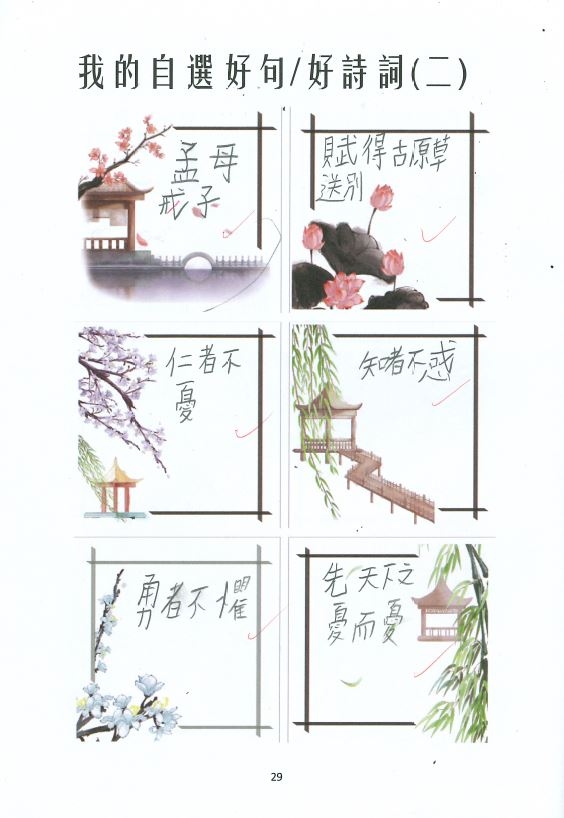 我的自選好句/好詩詞(二)
孟母
戒子
賦得古原草
送別
仁者不
憂
知者不惑
勇者不懼
先天下之
憂而憂
29